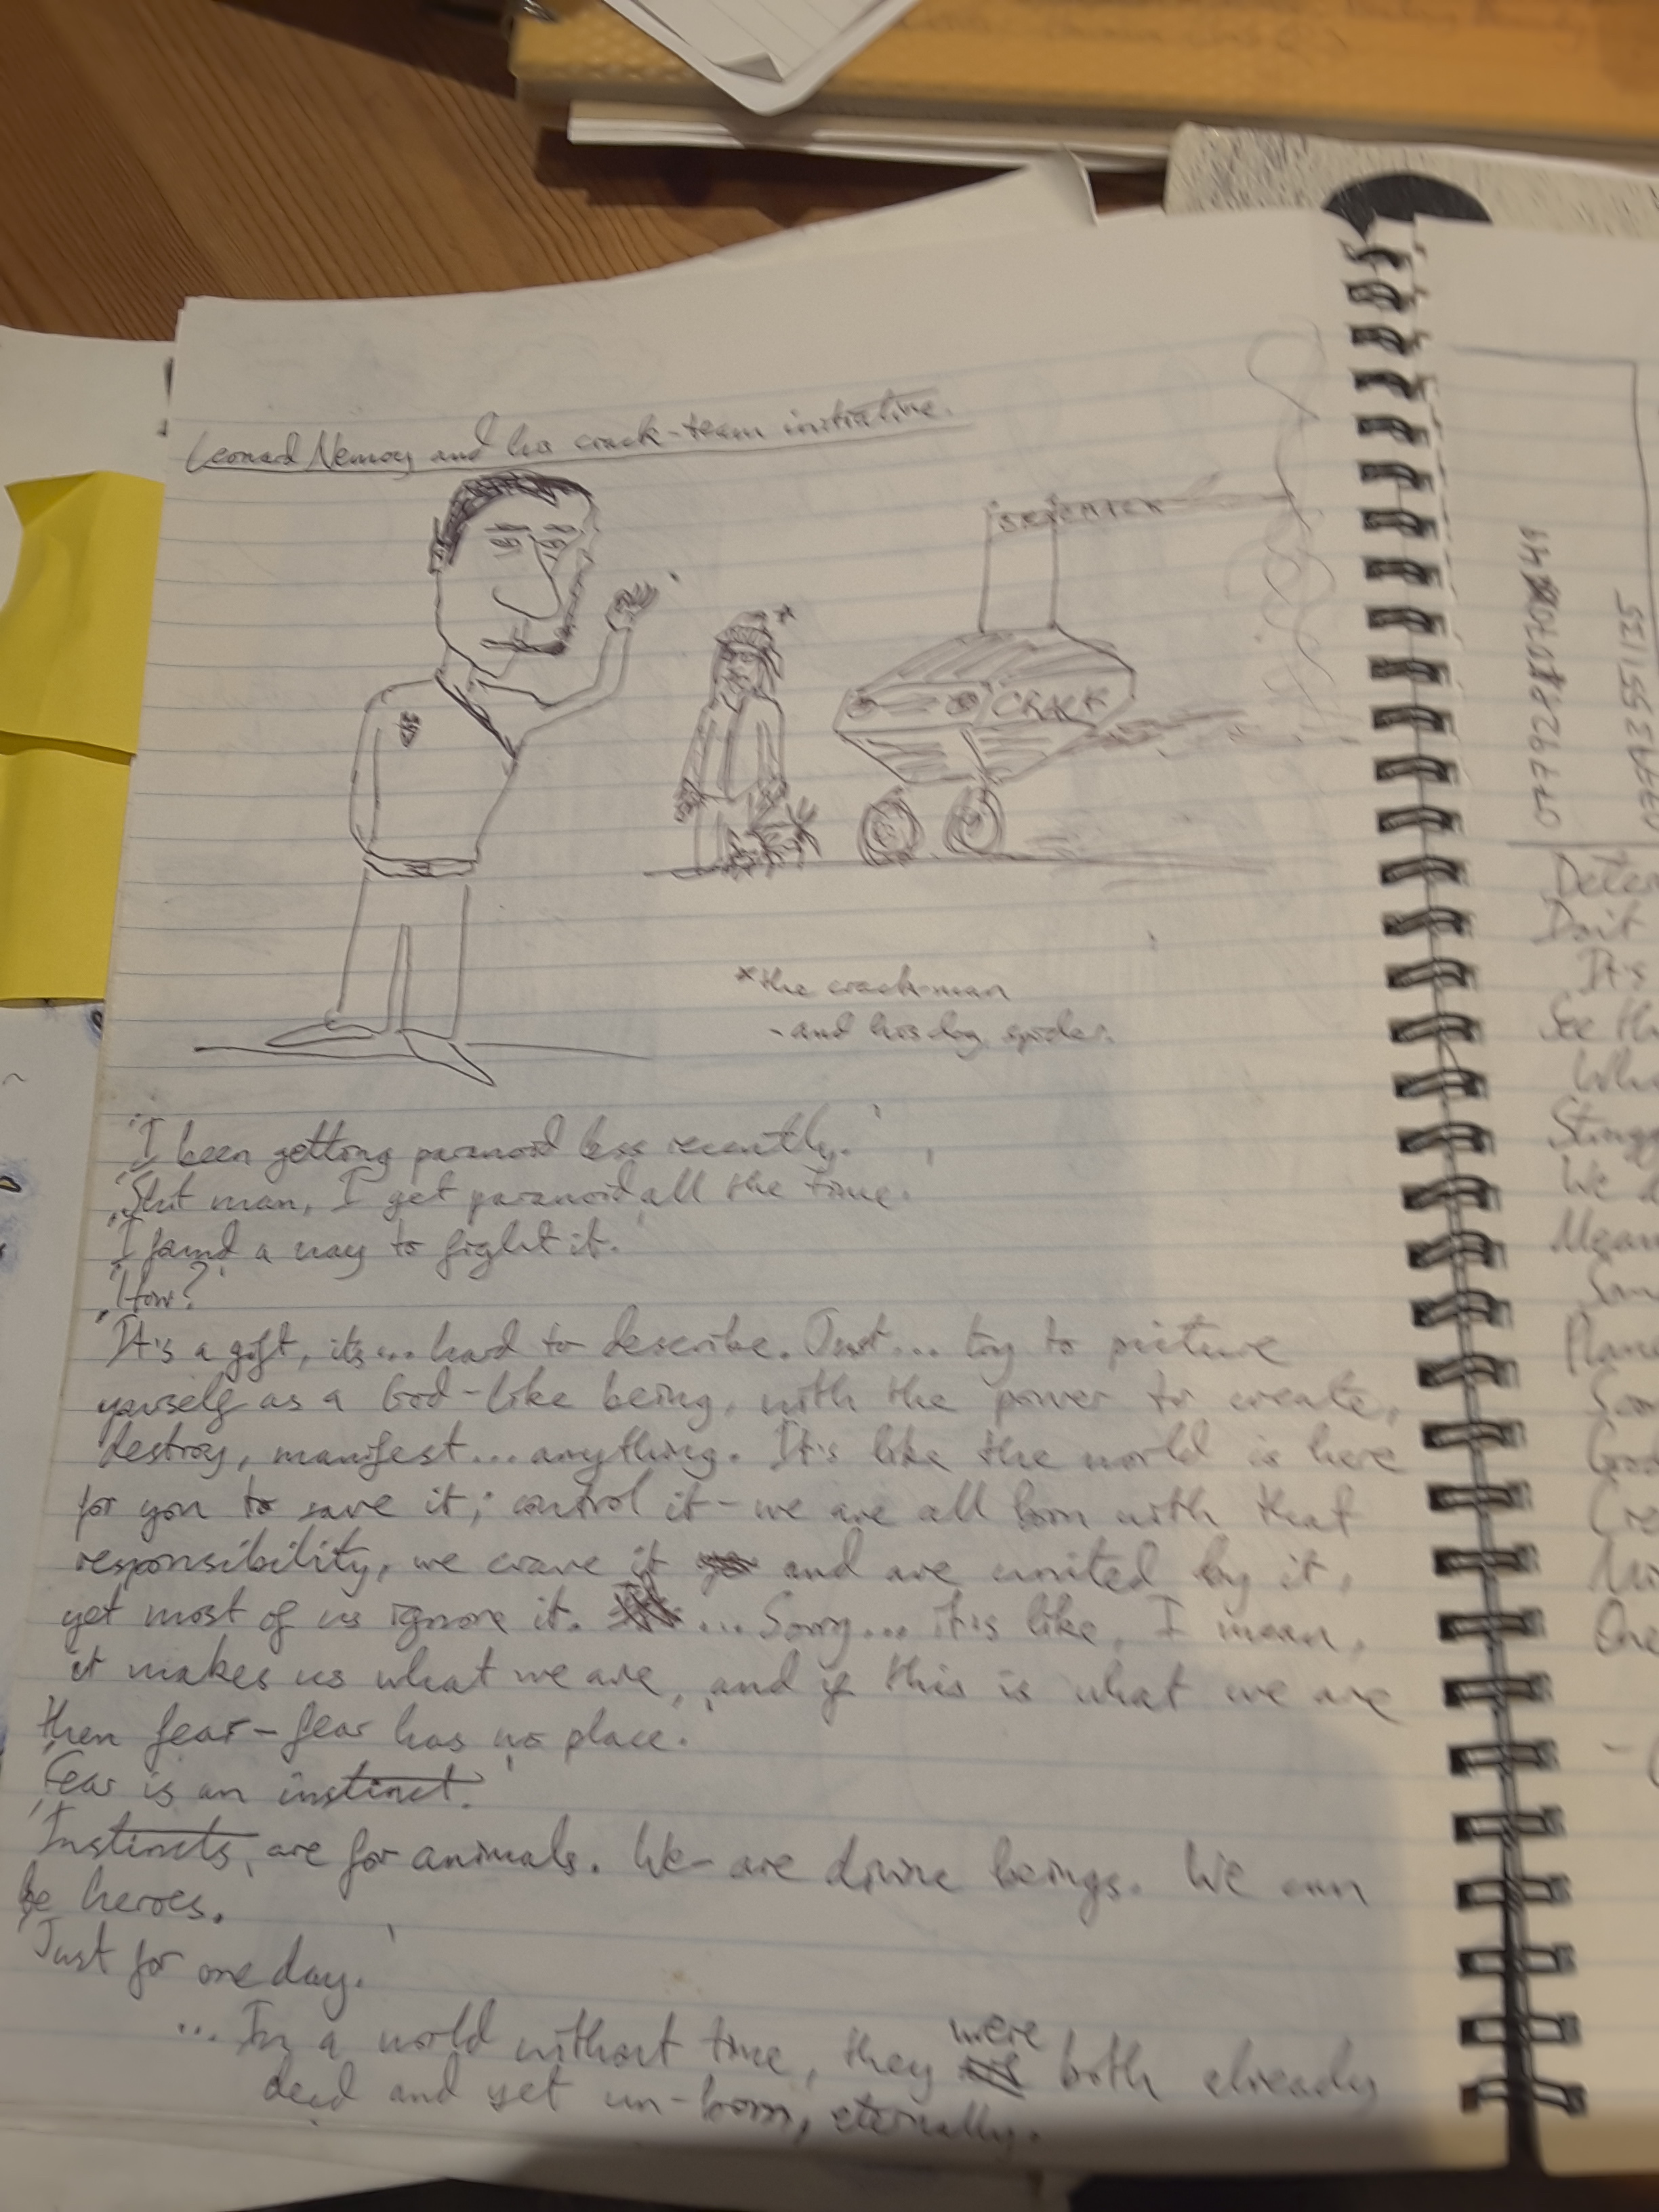 Leonard Nemoy and his crack-team initiative.
CRACK
*the crack-man
- and his dog spider.
'I been getting paranoid less recently.'
'Shit man, I get paranoid all the time.'
'I found a way to fight it.'
'How?'
'It's a gift, its... hard to describe. Just... try to picture
yourself as a God-like being, with the power to create,
destroy, manifest... anything. It's like the world is here
for you to save it; control it - we are all born with that
responsibility, we crave it and are united by it,
yet most of us ignore it. ... Sorry... it's like, I mean,
it makes us what we are, and if this is what we are
then fear - fear has no place.'
'Fear is an instinct.'
'Instincts, are for animals. We - are divine beings. We can
be heroes.
'Just for one day.'
... In a world without time, they were both already
dead and yet un-born, eternally.
Dont
It's
See
We
One